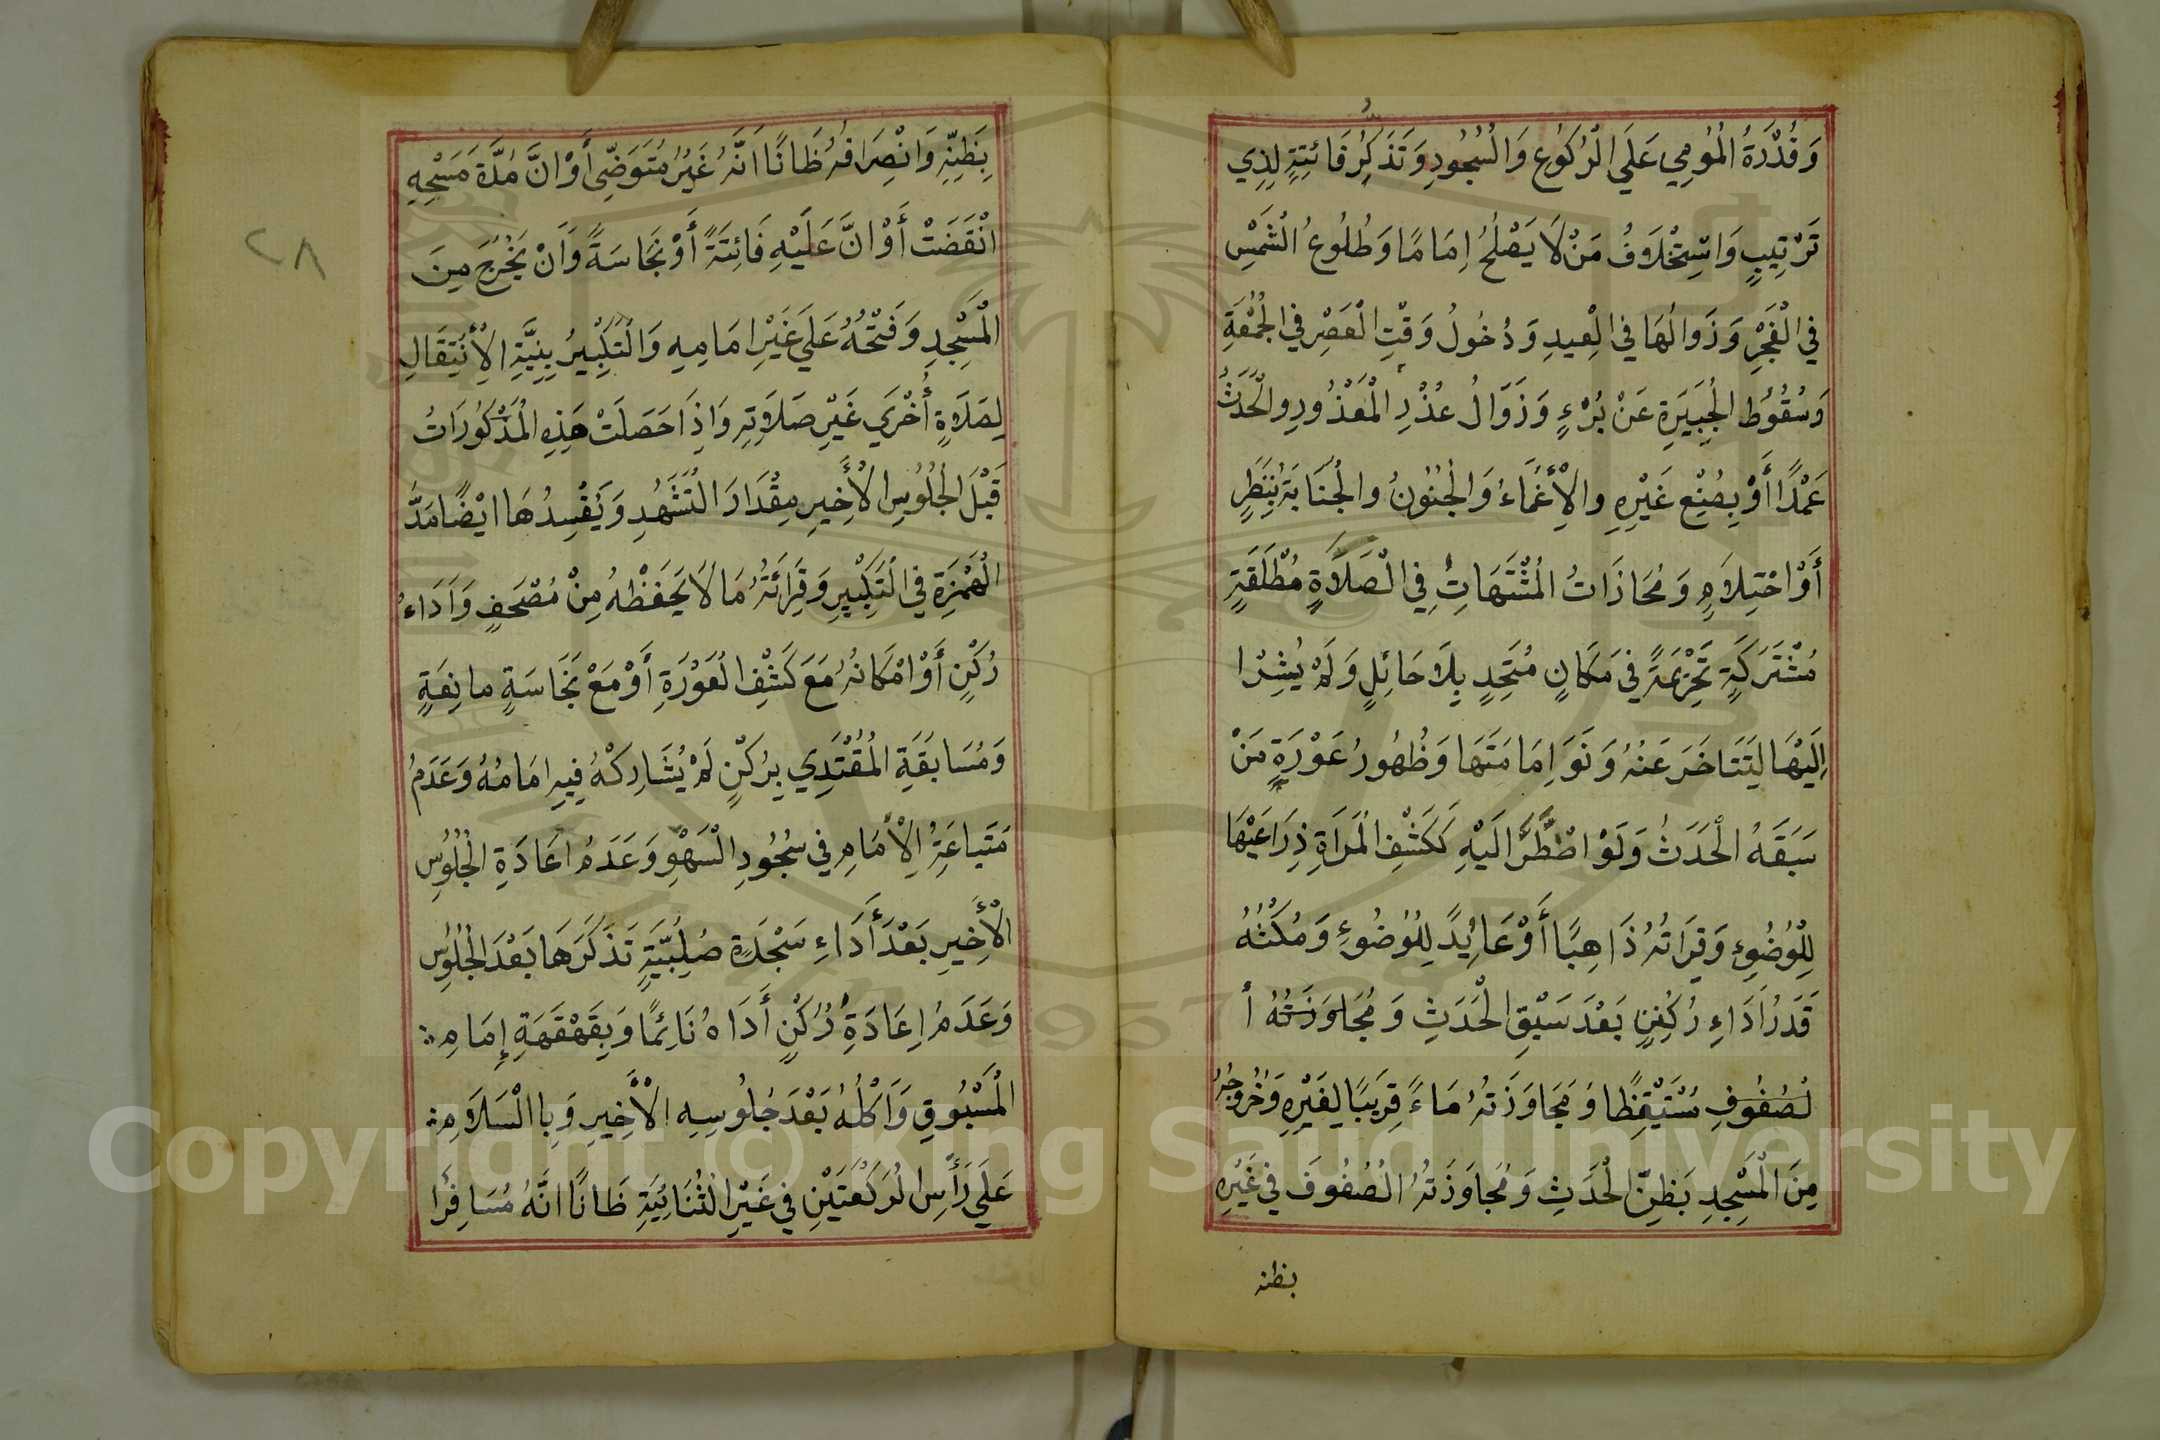 وَقُدْرَةُ الْمُومِي عَلَي الْرُكُوُعِ وَالْسُجُودِ وَتَذَكُّرِ فَائِتَةٍ لِذِي
تَرْتِيبٍ وَاسْتِخْلَافُ مَنْ لَا يَصْلُحُ اِمَامًا وَطُلُوعُ الْشَمْسِ
فِي الْفَجْرِ وَزَوَالُهَا فِي الْعِيدِ وَدُخُولُ وَقْتِ الْعَصْرِ فِي الْجُمْعَةِ
وَسُقُوُطِ الْجَبِيَرَةِ عَنْ بُرْءٍ وَزَوَالُ عُذْرِ الْمَعْذُورِ والْحَدَثُ
عَمْدًا أَوْ بِصُنْعِ غَيْرِهِ والْأِغْمَاءُ وَالْجُنُونُ والْجُنَابَةُ بِنَظَرٍ
أَوْاحْتِلَامٍ وَمُحَاذَاتُ الْمُشْتَهَاتِ فِي الْصَلَاةٍ مُطْلَقَةٍ
مُشْتَرَكَةٍ تَحْرِيْمَةً فِي مَكَانٍ مُتَّحِدٍ بِلَا حَائِلٍ وَلَمْ يُشِرْا
اِلَيْهَا لِتَتَاخَرَ عَنْهُ وَنَوَ اِمَامَتَهَا وَظُهُورُ عَوْرَةٍ مَنْ
سَبَقَهُ الْحَدَثُ وَلَوْ اضْطُّرَّ الَيْهِ كَكَشْفِ الْمَرَاةِ ذِرَاعَيْهَا
لِلْوُضُوءِ وَقِرَاتُهُ ذَاهِبًا أَوْ عَائِدً لِلْوُضُوءِ وَمُكْثُهُ
قَدَرَ اَدَاءِ رُكْنٍ بَعْدَ سَبْقِ الْحَدَثِ وَمُجَاوَزَتُهُ أ
لصُفُوفِ مُسْتَيْقِظًا وَمُجَاوَزَتُهُ مَاءً قَرِيَبًا لِغَيْرِهِ وَخُرُوجُهُ
مِنَ الْمَسْجِدِ بَظِنِّ الْحَدَثِ وَمُجاوَزَتُهُ الْصُفُوفَ فِي غَيْرِهِ
بظنه
٢٨
بِظَنِّهِ وَانْصِرَافُهُ ظَانًا اَنَّهُ غَيْرُ مُتَوَضِّى أَوْ انَّ مُدَّةَ مَسْحِهِ
انْقَضَتْ أَوْ انَّ عَلَيْهِ فَائِتَةً أَوْ نَجَاسَةً وَاَنْ يَخْرُجَ مِنَ
الْمَسْجِدِ وَفَتْحُهُ عَلَي غَيْرِ امَامِهِ وَالْتَكْبِيرُ بِنِيَّةِ الِأنْتِقَالِ
لِصَلَاةٍ أُخْرَي غَيْرِ صَلَاتِهِ وَاِذَا حَصَلَتْ هَذِهِ الْمَذْكُوُرَاتُ
قَبْلَ الْجُلُوُسِ الْأَخِيرِ مِقْدَارَ الْتَشَهُدِ وَيُفْسِدُهَا ايْضًا مَدُّ
الْهَمْزَةِ فِي الْتَكْبِيرِ وَقِرَائَتُهُ مَا لَا يَحْفَظُهُ مِنْ مُصْحَفٍ وَاَدَاءُ
رُكْنٍ أَوْ امْكَانُهُ مَعَ كَشْفِ الْعَوْرَةِ أَوْ مَعْ نَجَاسَةٍ مانِعَةٍ
وَمُسَابَقَةِ الْمُقْتَدِي بِرُكْنٍ لَمْ يُشَارِكْهُ فِيهِ امَامُهُ وَعَدَمُ
مَتَباعَةُ الِأمَامِ فِي سُجُودِ الْسَهْوِ وَعَدَمُ اعَادَةِ الْجُلُوُسِ
الْأَخِيرِ بَعْدَ أَدَاءِ سَجْدَةٍ صُلْبِيَّةٍ تَذَكَرَهَا بَعْدَ الْجُلُوُسِ
وَعَدَمُ اِعَادَةِ رُكْنٍ أَدَاهُ نَائِمًا وَبِقَهْقَهَةِ إِمَامِ
الْمَسْبُوقِ وَاَكْلُهُ بَعْدَ جُلُوسِهِ الْأَخِيرِ وَبِا الْسَلَامِ
عَلَي رَأسِ الْرَكْعَتَيْنِ فِي غَيْرِ الْثُنَائِيَّةِ ظَانًا انَّهُ مُسَافِرًا
Copyright © King Saud University
1957